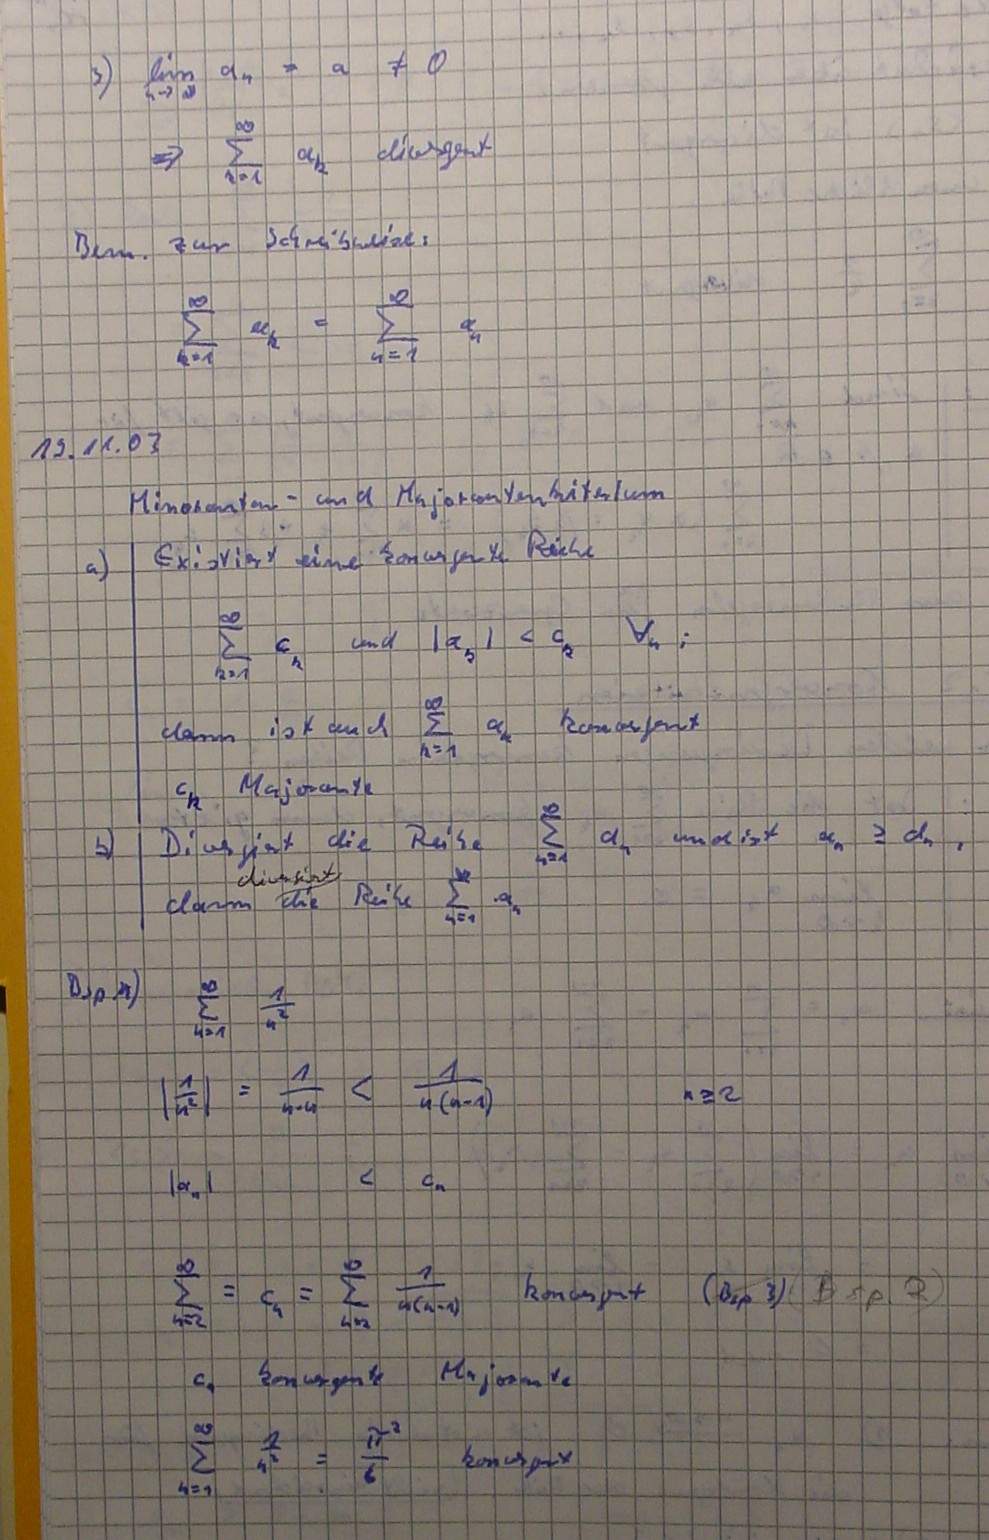 3) lim n→∞ aₙ = a ≠ 0
⇒ ∑_{k=1}^∞ aₖ divergent
Bem. zur Schreibweise:
∑_{k=1}^∞ aₖ = ∑_{n=1}^∞ aₙ
19.11.03
Minoranten- und Majorantenkriterium
a) Existiert eine konvergente Reihe
∑_{k=1}^∞ cₖ und |aₖ| < cₖ ∀ₖ ;
dann ist auch ∑_{k=1}^∞ aₖ konvergent
cₖ Majorante
b) Divergiert die Reihe ∑_{n=1}^∞ dₙ und ist aₙ ≥ dₙ ,
divergiert
dann die Reihe ∑_{n=1}^∞ aₙ
Bsp 1) ∑_{n=1}^∞ 1/n²
|1/n²| = 1/(n·n) < 1/(n(n-1)) n ≥ 2
|aₙ| < cₙ
∑_{n=2}^∞ = cₙ = ∑_{n=2}^∞ 1/(n(n-1)) konvergent (Bsp 3) (Bsp 2)
cₙ konvergente Majorante
∑_{n=1}^∞ 1/n² = π²/6 konvergent